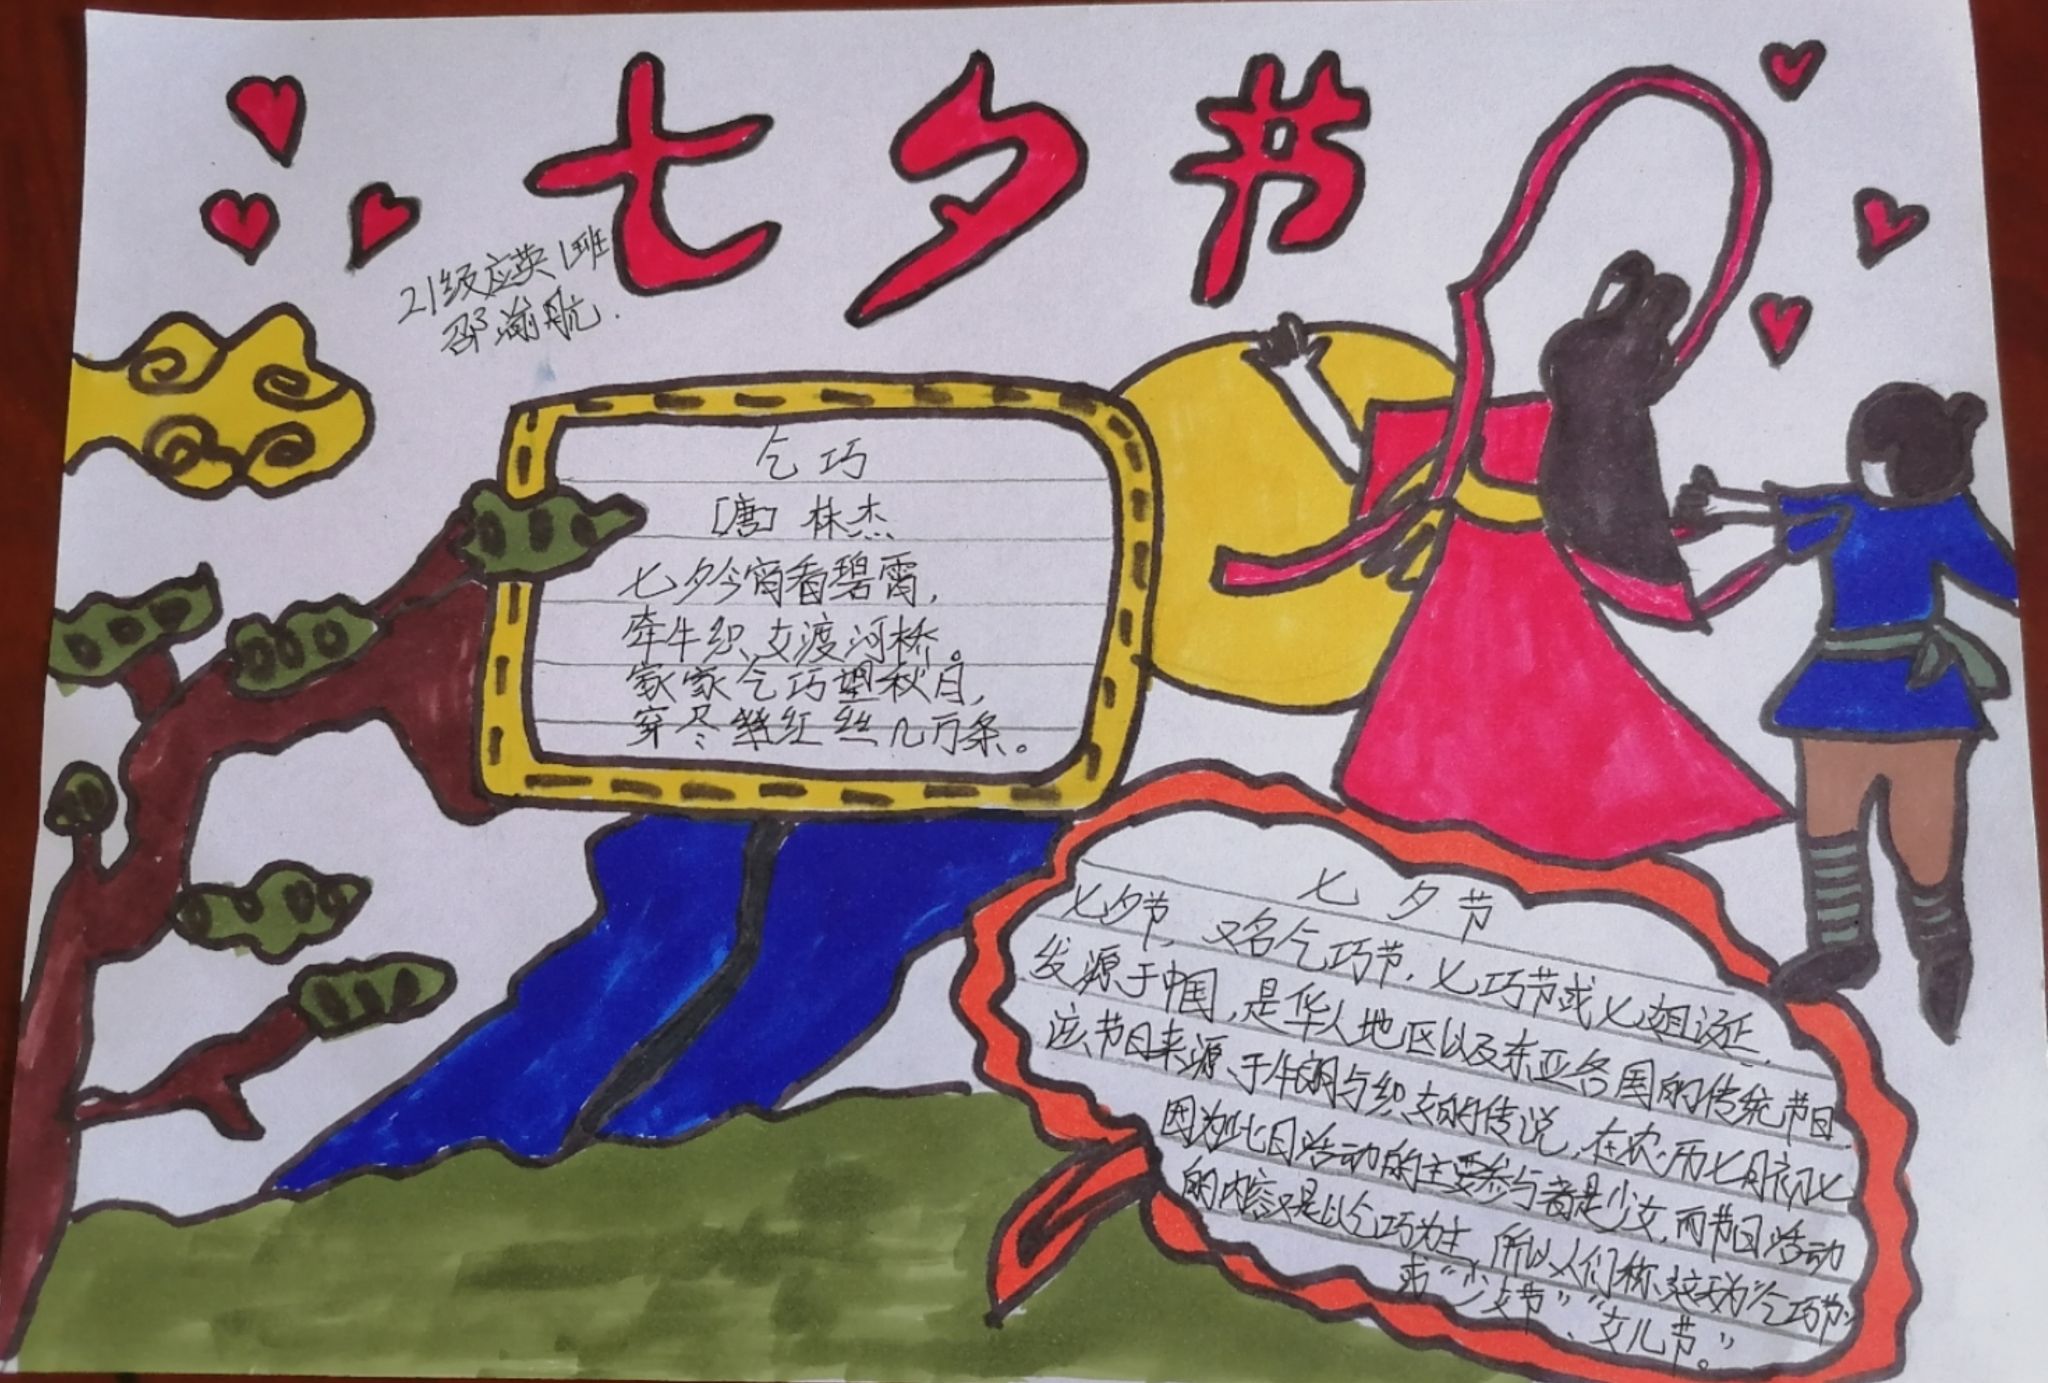 七夕节
21级应英1班
邵瀹航.
乞巧
[唐] 林杰
七夕今宵看碧霄,
牵牛织女渡河桥。
家家乞巧望秋月,
穿尽红丝几万条。
七夕节
七夕节,又名乞巧节,七巧节或七姐诞,
发源于中国,是华人地区以及东亚各国的传统节日,
该节日来源于牛朗与织女的传说,在农历七月初七
因为此日活动的主要参与者是少女,而节日活动
的内容又是以乞巧为主,所以人们称这天为“乞巧节”
或“少女节”、“女儿节”。